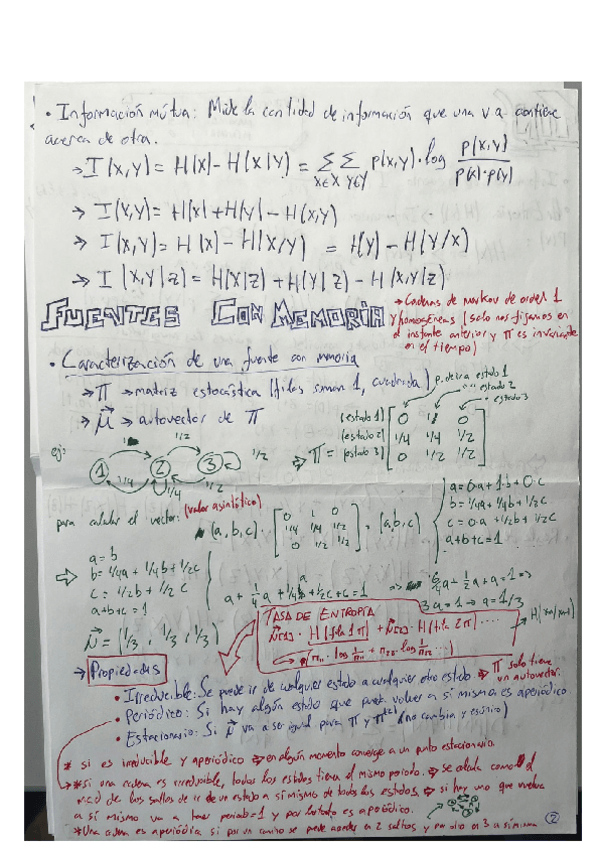 • Información mútua: Mide la cantidad de información que una v a contiene
acerca de otra.
→ I(X,Y) = H(X) - H(X|Y) = ΣΣ p(x,y)·log p(x,y) / p(x)·p(y)
x∈X y∈Y
→ I(X,Y) = H(X) + H(Y) - H(X,Y)
→ I(X,Y) = H(X) - H(X/Y) = H(Y) - H(Y/X)
→ I(X,Y|Z) = H(X|Z) + H(Y|Z) - H(X,Y|Z)
FUENTES CON MEMORIA
→ Cadenas de markov de orden 1
y homogéneas (solo nos fijamos en
el instante anterior y π es invariante
en el tiempo)
• Caracterización de una fuente con memoria
→ π → matriz estocástica (filas suman 1, cuadrada)
→ μ⃗ → autovector de π
p. de ir a estado 1
estado 2
estado 3
ej:
1 2 3
1 1/2 1/2
1/4 1/4 1/2
⇒ π =
(estado 1) 0 1 0
(estado 2) 1/4 1/4 1/2
(estado 3) 0 1/2 1/2
para calcular el vector: (valor asintótico)
(a, b, c) · = (a, b, c)
0 1 0
1/4 1/4 1/2
0 1/2 1/2
a+b+c=1
⇒ a = b
b = 1/4a + 1/4b + 1/2c
c = 1/2b + 1/2c
a+b+c=1
3a = 1 → a = 1/3
μ⃗ = (1/3, 1/3, 1/3)
TASA DE ENTROPÍA
μ⃗[1] · H(fila 1 π) + μ⃗[2] · H(fila 2 π) ....
→ Propiedades
• Irreducible: Se puede ir de cualquier estado a cualquier otro estado ⇒ π solo tiene
un autovector.
• Periódico: Si hay algún estado que pueda volver a si misma es aperiódico
• Estacionario: Si μ⃗ va a ser igual para π y (no cambia y es único)
* si es irreducible y aperiódico ⇒ en algún momento converge a un punto estacionario.
* si una cadena es irreducible, todos los estados tienen el mismo periodo. ⇒ se calcula como el
mcd de los saltos de ir de un estado a sí mismo de todos los estados. ⇒ si hay uno que vuelva
a sí mismo va a tener periodo=1 y por lo tanto es aperiódico.
* Una cadena es aperiódica si por un camino se puede acceder a 2 saltos y por otro a 3 a sí misma
2